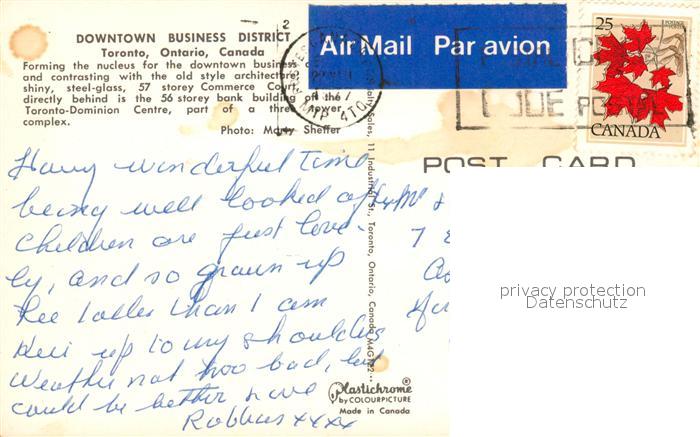 DOWNTOWN BUSINESS DISTRICT
Toronto, Ontario, Canada
Forming the nucleus for the downtown business
and contrasting with the old style architecture
shiny, steel-glass, 57 storey Commerce Co
directly behind is the 56 storey bank building of the
Toronto-Dominion Centre, part of a three tower
complex.
Photo: Marty Sheffer
2
Air Mail Par avion
25
POSTAGE
POSTES
CANADA
POST CARD
Having wonderful time
being well looked after
children are just love-
ly, and so grown up
Lee taller than I am
up to my shoulders
weather not too bad, but
could be better love
Robbies xxxx
Sales, 11 Industrial St., Toronto, Ontario, Canada M4G 1Z2
Mr &
7
privacy protection
Datenschutz
Plastichrome®
by COLOURPICTURE
Made in Canada